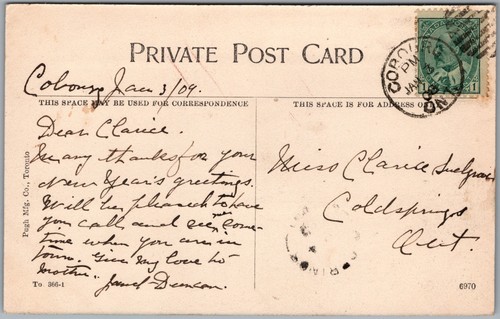 PRIVATE POST CARD
Cobourg Jan 3/09.
THIS SPACE MAY BE USED FOR CORRESPONDENCE
THIS SPACE IS FOR ADDRESS ON
Dear Clarice.
Many thanks for your
New Year's greetings.
Will be pleased to have
you call and see me some-
time when you are in
town. Give my love to
mother. Duncan.
Miss Clarice
Coldsprings
Ont.
Pugh Mfg. Co., Toronto
To 366-1
6970
COBOURG
PM
JA
ONT
1